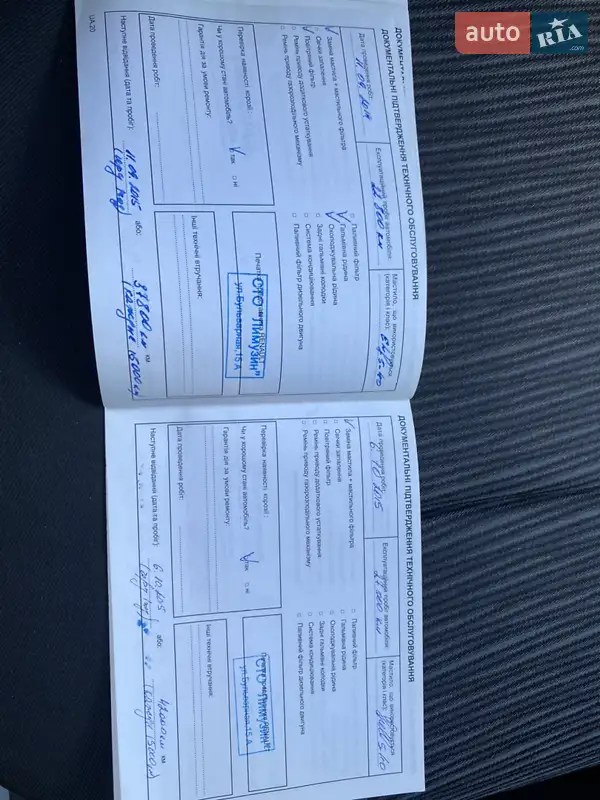 auto RIA .com
ДОКУМЕНТАЛЬНІ ПІДТВЕРДЖЕННЯ ТЕХНІЧНОГО ОБСЛУГОВУВАННЯ
Дата проведення робіт:
11.09.2014
Експлуатаційний пробіг автомобіля:
22 800 км
Мастило, що використовується
(категорія і клас):
5-40
Заміна мастила + мастильного фільтра
Свічки запалення
Повітряний фільтр
Ремінь приводу додаткового устаткування
Ремінь приводу газорозподільного механізму
Паливний фільтр
Гальмівна рідина
Охолоджувальна рідина
Задні гальмівні колодки
Система кондиціювання
Паливний фільтр дизельного двигуна
Перевірка наявності корозії:
Чи у хорошому стані автомобіль?
так
ні
Гарантія діє за умови ремонту:
СТО "Лимузин"
ул.Бульварная,15 А
Дата проведення робіт:
Інші технічні втручання:
Наступне відвідання (дата та пробіг):
11.09.2015
або:
37800 км
км
UA.20
ДОКУМЕНТАЛЬНІ ПІДТВЕРДЖЕННЯ ТЕХНІЧНОГО ОБСЛУГОВУВАННЯ
Дата проведення робіт:
6.10.2015
Експлуатаційний пробіг автомобіля:
27 000 км
Мастило, що використовується
(категорія і клас):
Заміна мастила + мастильного фільтра
Свічки запалення
Повітряний фільтр
Ремінь приводу додаткового устаткування
Ремінь приводу газорозподільного механізму
Паливний фільтр
Гальмівна рідина
Охолоджувальна рідина
Задні гальмівні колодки
Система кондиціювання
Паливний фільтр дизельного двигуна
Перевірка наявності корозії:
Чи у хорошому стані автомобіль?
так
ні
Гарантія діє за умови ремонту:
СТО "Лимузин"
ул.Бульварная,15 А
Дата проведення робіт:
Інші технічні втручання:
Наступне відвідання (дата та пробіг):
або:
км